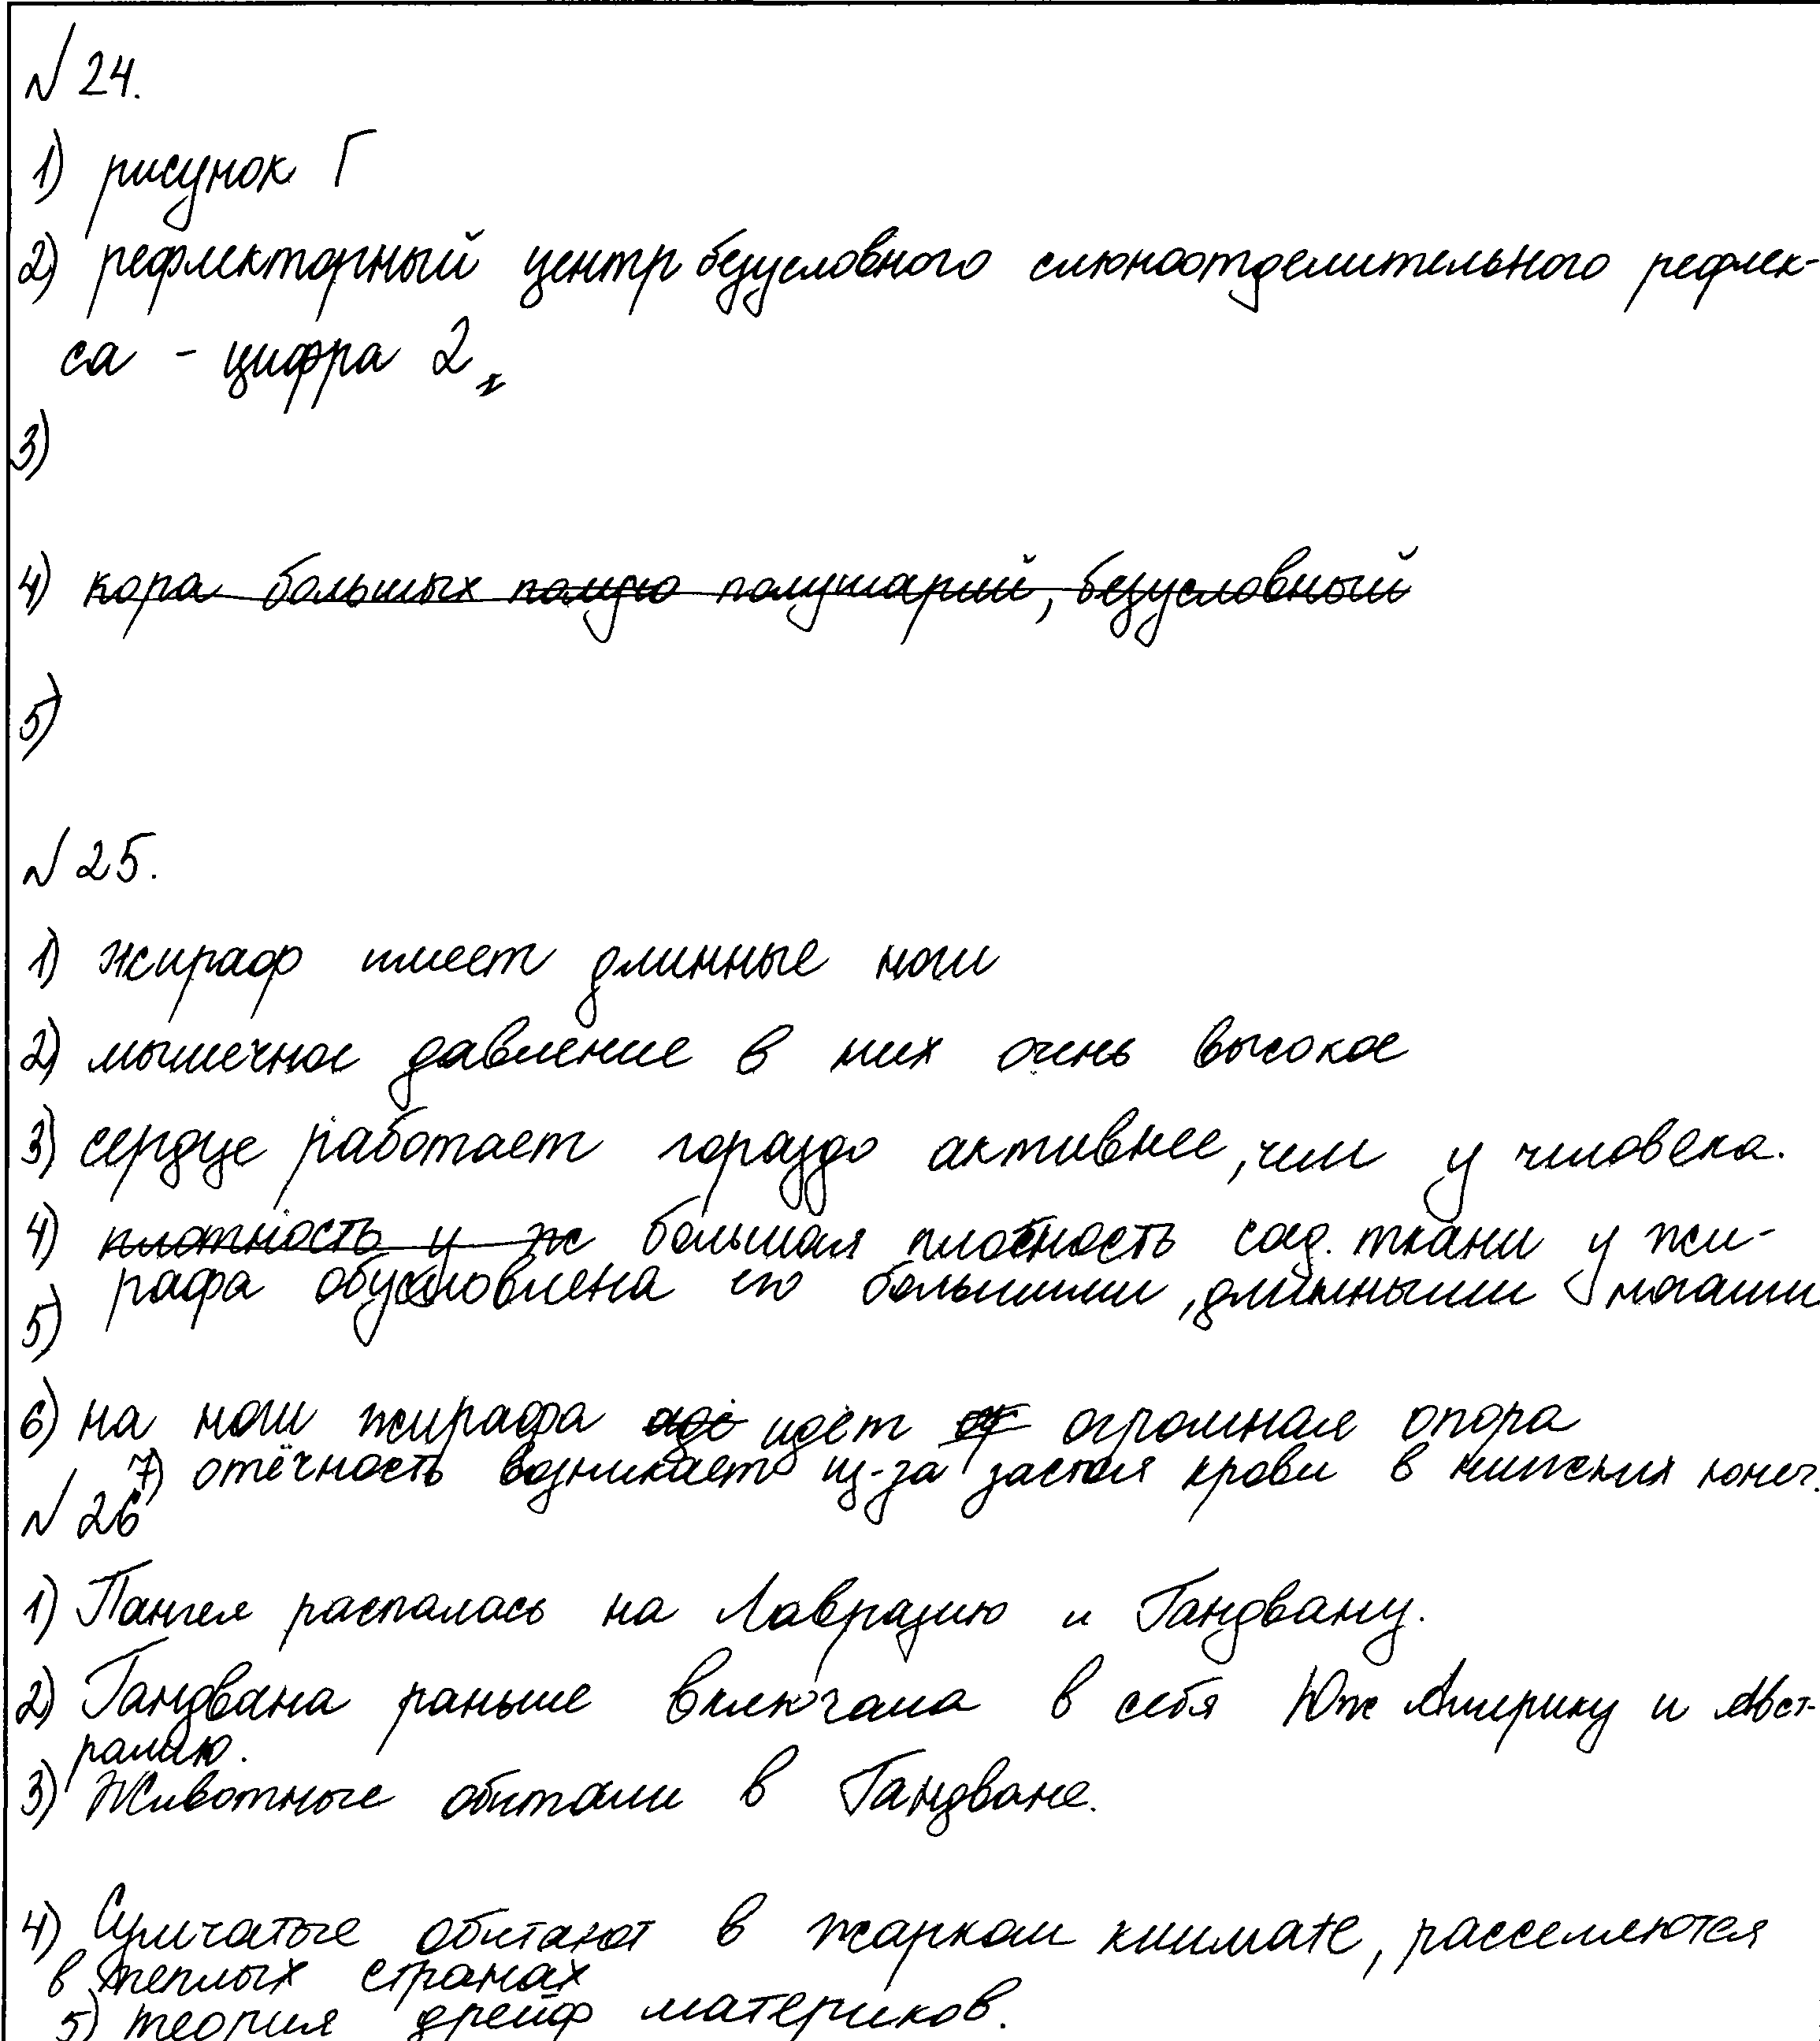 № 24.
1) рисунок Г
2) рефлекторный центр безусловного слюноотделительного рефлек-
са - цифра 2
3)
4) кора больших полую полушарий, безусловный
5)
№ 25.
1) жираф имеет длинные ноги
2) мышечное давление в них очень высокое
3) сердце работает гораздо активнее, чем у человека.
4) плотность у ж большая плотность соед. ткани у жи-
рафа обусловлена его большими, длинными ногами
5)
6) на ноги жирафа идёт огромная опора
7) отёчность возникает из-за застоя крови в нижних конеч.
№ 26
1) Пангея распалась на Лавразию и Гандвану.
2) Гандвана раньше включала в себя Юж Америку и Авст-
ралию.
3) Животные обитали в Гандване.
4) Сумчатые обитают в жарком климате, расселяются
в теплых странах
5) теория дрейф материков.